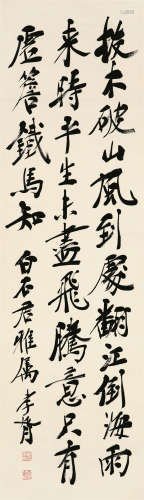 拔木破山風到處翻江倒海雨
来時平生未盡飛騰意只有
虚簷鐵馬知 白石君雅属 李膺